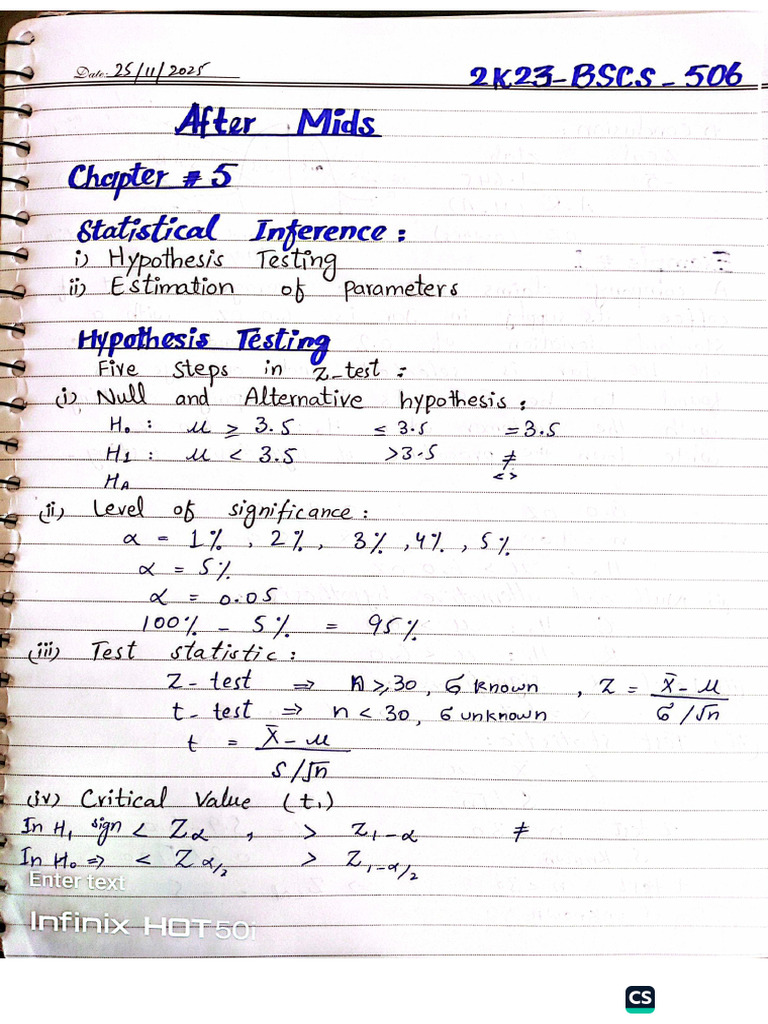 Date: 25/11/2025
2K23-BSCS-506
After Mids
Chapter # 5
Statistical Inference :
i) Hypothesis Testing
ii) Estimation of parameters
Hypothesis Testing
Five Steps in Z-test :
(i) Null and Alternative hypothesis :
H₀ : μ ≥ 3.5 ≤ 3.5 = 3.5
H1 : μ < 3.5 >3.5 ≠
HA <>
(ii) Level of significance :
α = 1% , 2% , 3% , 4% , 5%
α = 5%
α = 0.05
100% - 5% = 95%
(iii) Test statistic :
Z-test ⇒ n ≥ 30 , σ known , Z = X̄ - μ / σ/√n
t-test ⇒ n < 30 , σ unknown
t = X̄ - μ / S/√n
(iv) Critical Value (t₁)
In H₁ sign < Zα , > Z₁₋α ≠
In H₀ ⇒ < Zα/2 > Z₁₋α/2
Enter text
Infinix HOT 50i
CS